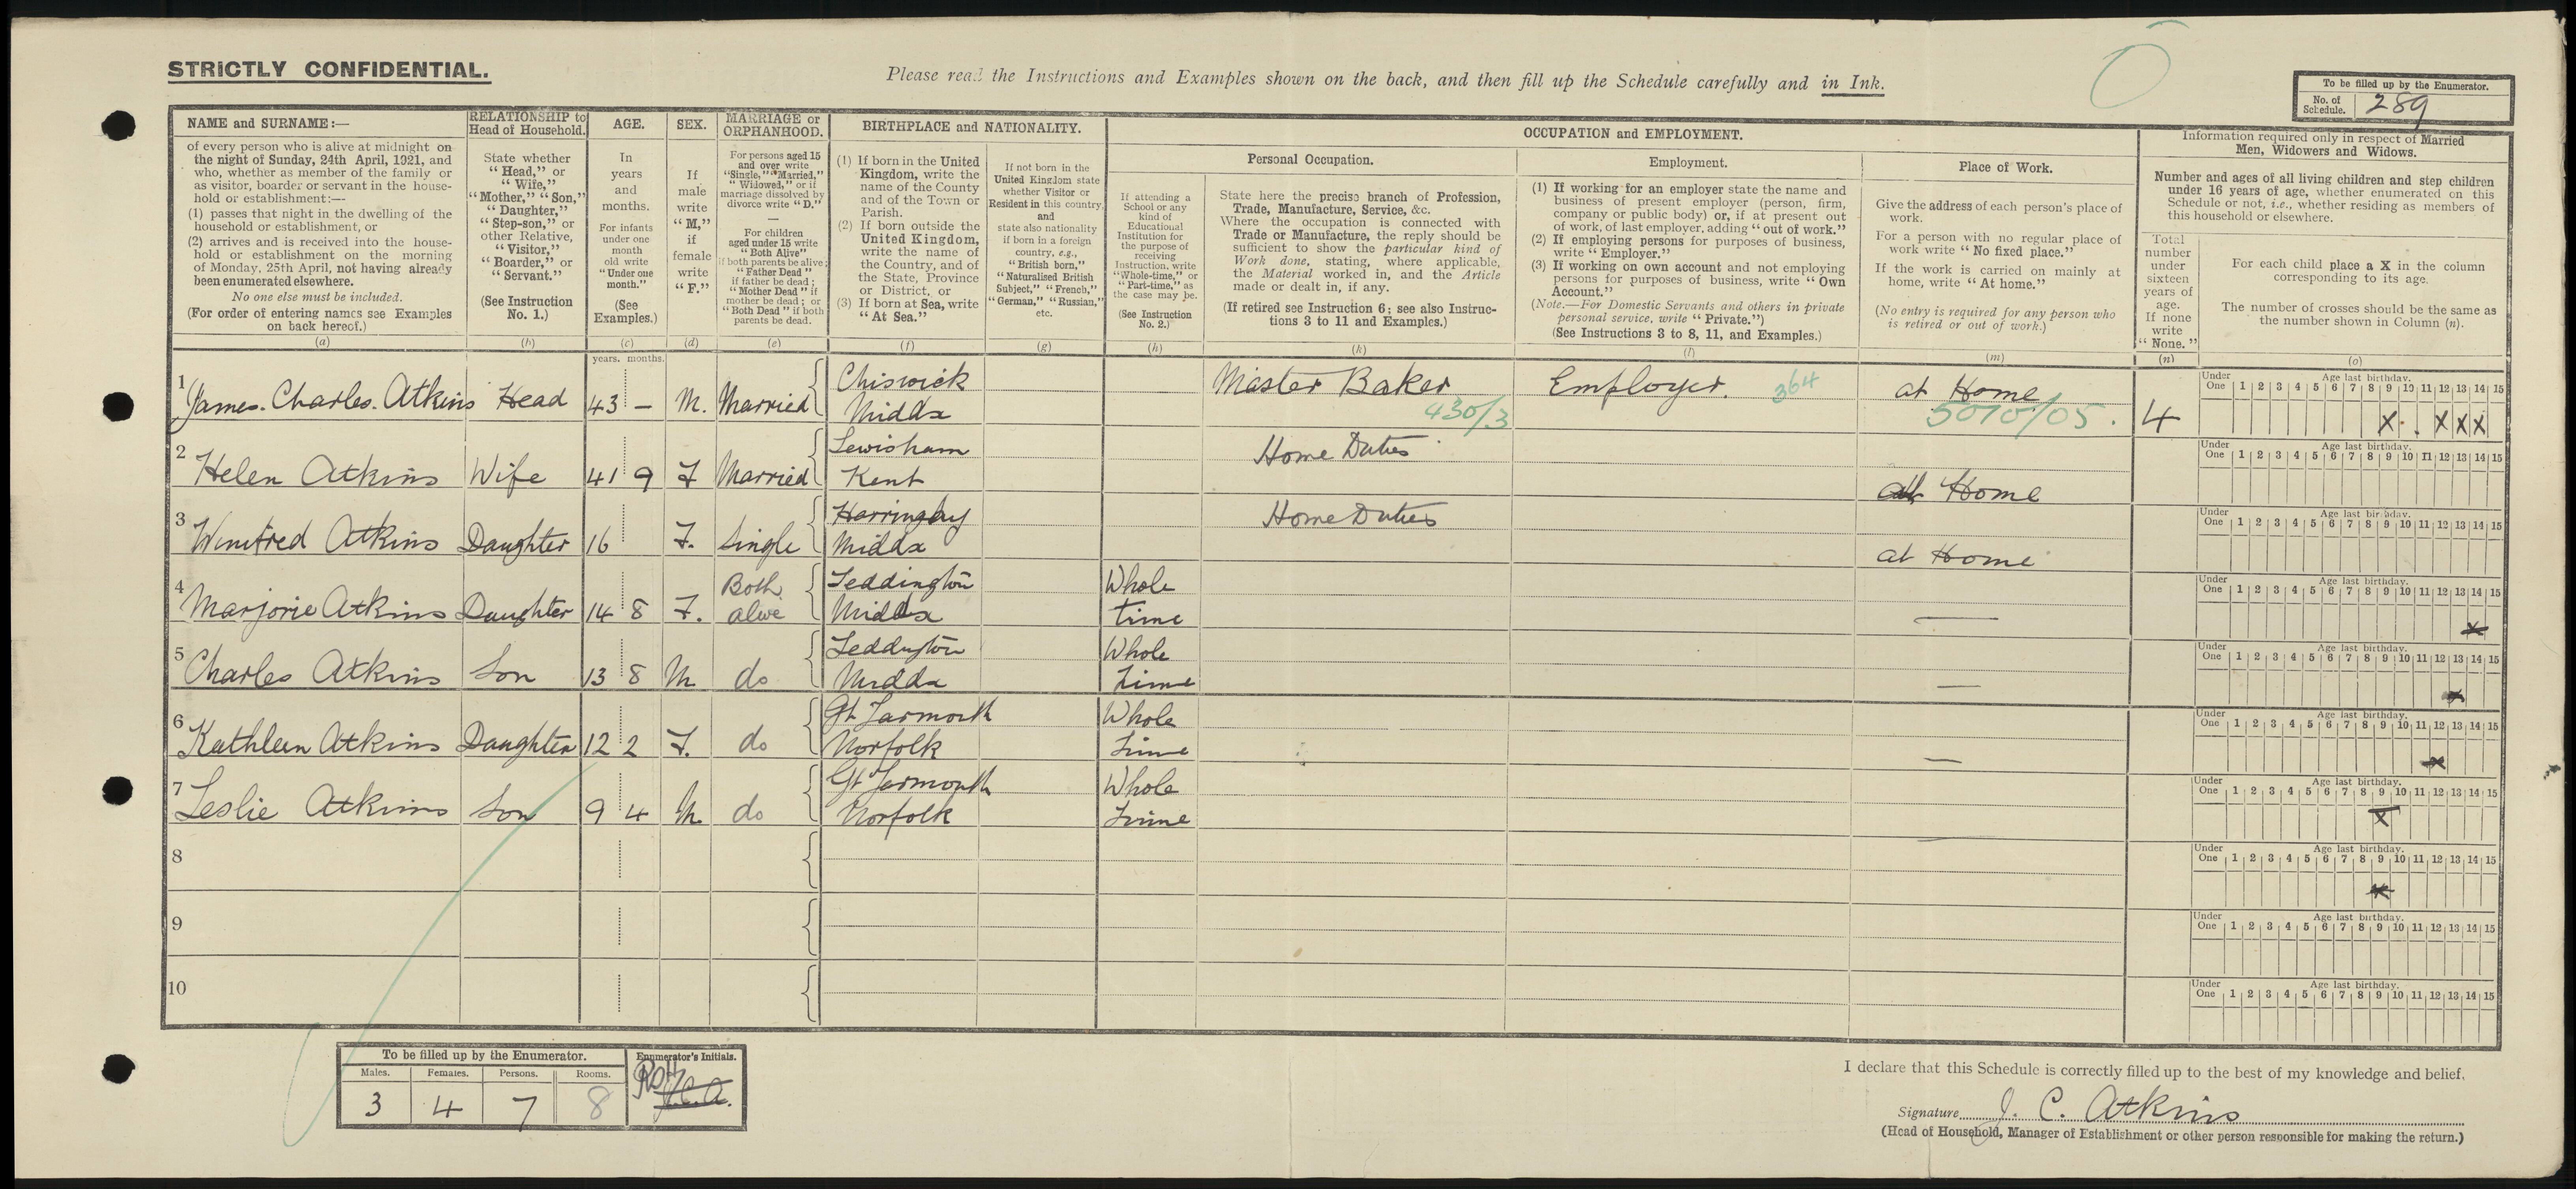 STRICTLY CONFIDENTIAL.
Please read the Instructions and Examples shown on the back, and then fill up the Schedule carefully and in Ink.
To be filled up by the Enumerator.
No. of Schedule. 289
NAME and SURNAME:—
of every person who is alive at midnight on
the night of Sunday, 24th April, 1921, and
who, whether as member of the family or
as visitor, boarder or servant in the house-
hold or establishment:—
(1) passes that night in the dwelling of the
household or establishment, or
(2) arrives and is received into the house-
hold or establishment on the morning
of Monday, 25th April, not having already
been enumerated elsewhere.
No one else must be included.
(For order of entering names see Examples
on back hereof.)
(a)
RELATIONSHIP to
Head of Household.
State whether
"Head," or
"Wife,"
"Mother," "Son,"
"Daughter,"
"Step-son," or
other Relative,
"Visitor,"
"Boarder," or
"Servant."
(See Instruction
No. 1.)
(b)
AGE.
In
years
and
months.
For infants
under one
month
old write
"Under one
month."
(See
Examples.)
(c)
years. months.
SEX.
If
male
write
"M,"
if
female
write
"F."
(d)
MARRIAGE or
ORPHANHOOD.
For persons aged 15
and over write
"Single," "Married,"
"Widowed," or if
marriage dissolved by
divorce write "D."
—
For children
aged under 15 write
"Both Alive"
if both parents be alive;
"Father Dead"
if father be dead;
"Mother Dead" if
mother be dead; or
"Both Dead" if both
parents be dead.
(e)
BIRTHPLACE and NATIONALITY.
(1) If born in the United
Kingdom, write the
name of the County
and of the Town or
Parish.
(2) If born outside the
United Kingdom,
write the name of
the Country, and of
the State, Province
or District, or
(3) If born at Sea, write
"At Sea."
(f)
If not born in the
United Kingdom state
whether Visitor or
Resident in this country,
and
state also nationality
if born in a foreign
country, e.g.,
"British born,"
"Naturalised British
Subject," "French,"
"German," "Russian,"
etc.
(g)
OCCUPATION and EMPLOYMENT.
Personal Occupation.
If attending a
School or any
kind of
Educational
Institution for
the purpose of
receiving
Instruction, write
"Whole-time," or
"Part-time," as
the case may be.
(See Instruction
No. 2.)
(h)
State here the precise branch of Profession,
Trade, Manufacture, Service, &c.
Where the occupation is connected with
Trade or Manufacture, the reply should be
sufficient to show the particular kind of
Work done, stating, where applicable,
the Material worked in, and the Article
made or dealt in, if any.
(If retired see Instruction 6; see also Instruc-
tions 3 to 11 and Examples.)
(k)
Employment.
(1) If working for an employer state the name and
business of present employer (person, firm,
company or public body) or, if at present out
of work, of last employer, adding "out of work."
(2) If employing persons for purposes of business,
write "Employer."
(3) If working on own account and not employing
persons for purposes of business, write "Own
Account."
(Note.—For Domestic Servants and others in private
personal service, write "Private.")
(See Instructions 3 to 8, 11, and Examples.)
(l)
Place of Work.
Give the address of each person's place of
work.
For a person with no regular place of
work write "No fixed place."
If the work is carried on mainly at
home, write "At home."
(No entry is required for any person who
is retired or out of work.)
(m)
Information required only in respect of Married
Men, Widowers and Widows.
Number and ages of all living children and step children
under 16 years of age, whether enumerated on this
Schedule or not, i.e., whether residing as members of
this household or elsewhere.
Total
number
under
sixteen
years of
age.
If none
write
"None."
(n)
For each child place a X in the column
corresponding to its age.
The number of crosses should be the same as
the number shown in Column (n).
(o)
1 James. Charles. Atkins Head 43 – M. Married Chiswick Middx Master Baker 430/3 Employer. 364 at Home 5010/05. 4
Under One 1 2 3 4 5 6 7 8 9 10 11 12 13 14 15
Age last birthday.
X X X X
2 Helen Atkins Wife 41 9 F Married Lewisham Kent Home Duties at Home
Under One 1 2 3 4 5 6 7 8 9 10 11 12 13 14 15
Age last birthday.
3 Winifred Atkins Daughter 16 F. Single Harringay Middx Home Duties at Home
Under One 1 2 3 4 5 6 7 8 9 10 11 12 13 14 15
Age last birthday.
4 Marjorie Atkins Daughter 14 8 F. Both alive Teddington Middx Whole time —
Under One 1 2 3 4 5 6 7 8 9 10 11 12 13 14 15
Age last birthday.
X
5 Charles Atkins Son 13 8 M do Teddington Middx Whole time —
Under One 1 2 3 4 5 6 7 8 9 10 11 12 13 14 15
Age last birthday.
X
6 Kathleen Atkins Daughter 12 2 F. do Gt Yarmouth Norfolk Whole time —
Under One 1 2 3 4 5 6 7 8 9 10 11 12 13 14 15
Age last birthday.
X
7 Leslie Atkins Son 9 4 M. do Gt Yarmouth Norfolk Whole time —
Under One 1 2 3 4 5 6 7 8 9 10 11 12 13 14 15
Age last birthday.
X
8
Under One 1 2 3 4 5 6 7 8 9 10 11 12 13 14 15
Age last birthday.
X
9
Under One 1 2 3 4 5 6 7 8 9 10 11 12 13 14 15
Age last birthday.
10
Under One 1 2 3 4 5 6 7 8 9 10 11 12 13 14 15
Age last birthday.
To be filled up by the Enumerator.
Males. Females. Persons. Rooms.
3 4 7 8
Enumerator's Initials.
J.C.A.
I declare that this Schedule is correctly filled up to the best of my knowledge and belief.
Signature J. C. Atkins
(Head of Household, Manager of Establishment or other person responsible for making the return.)